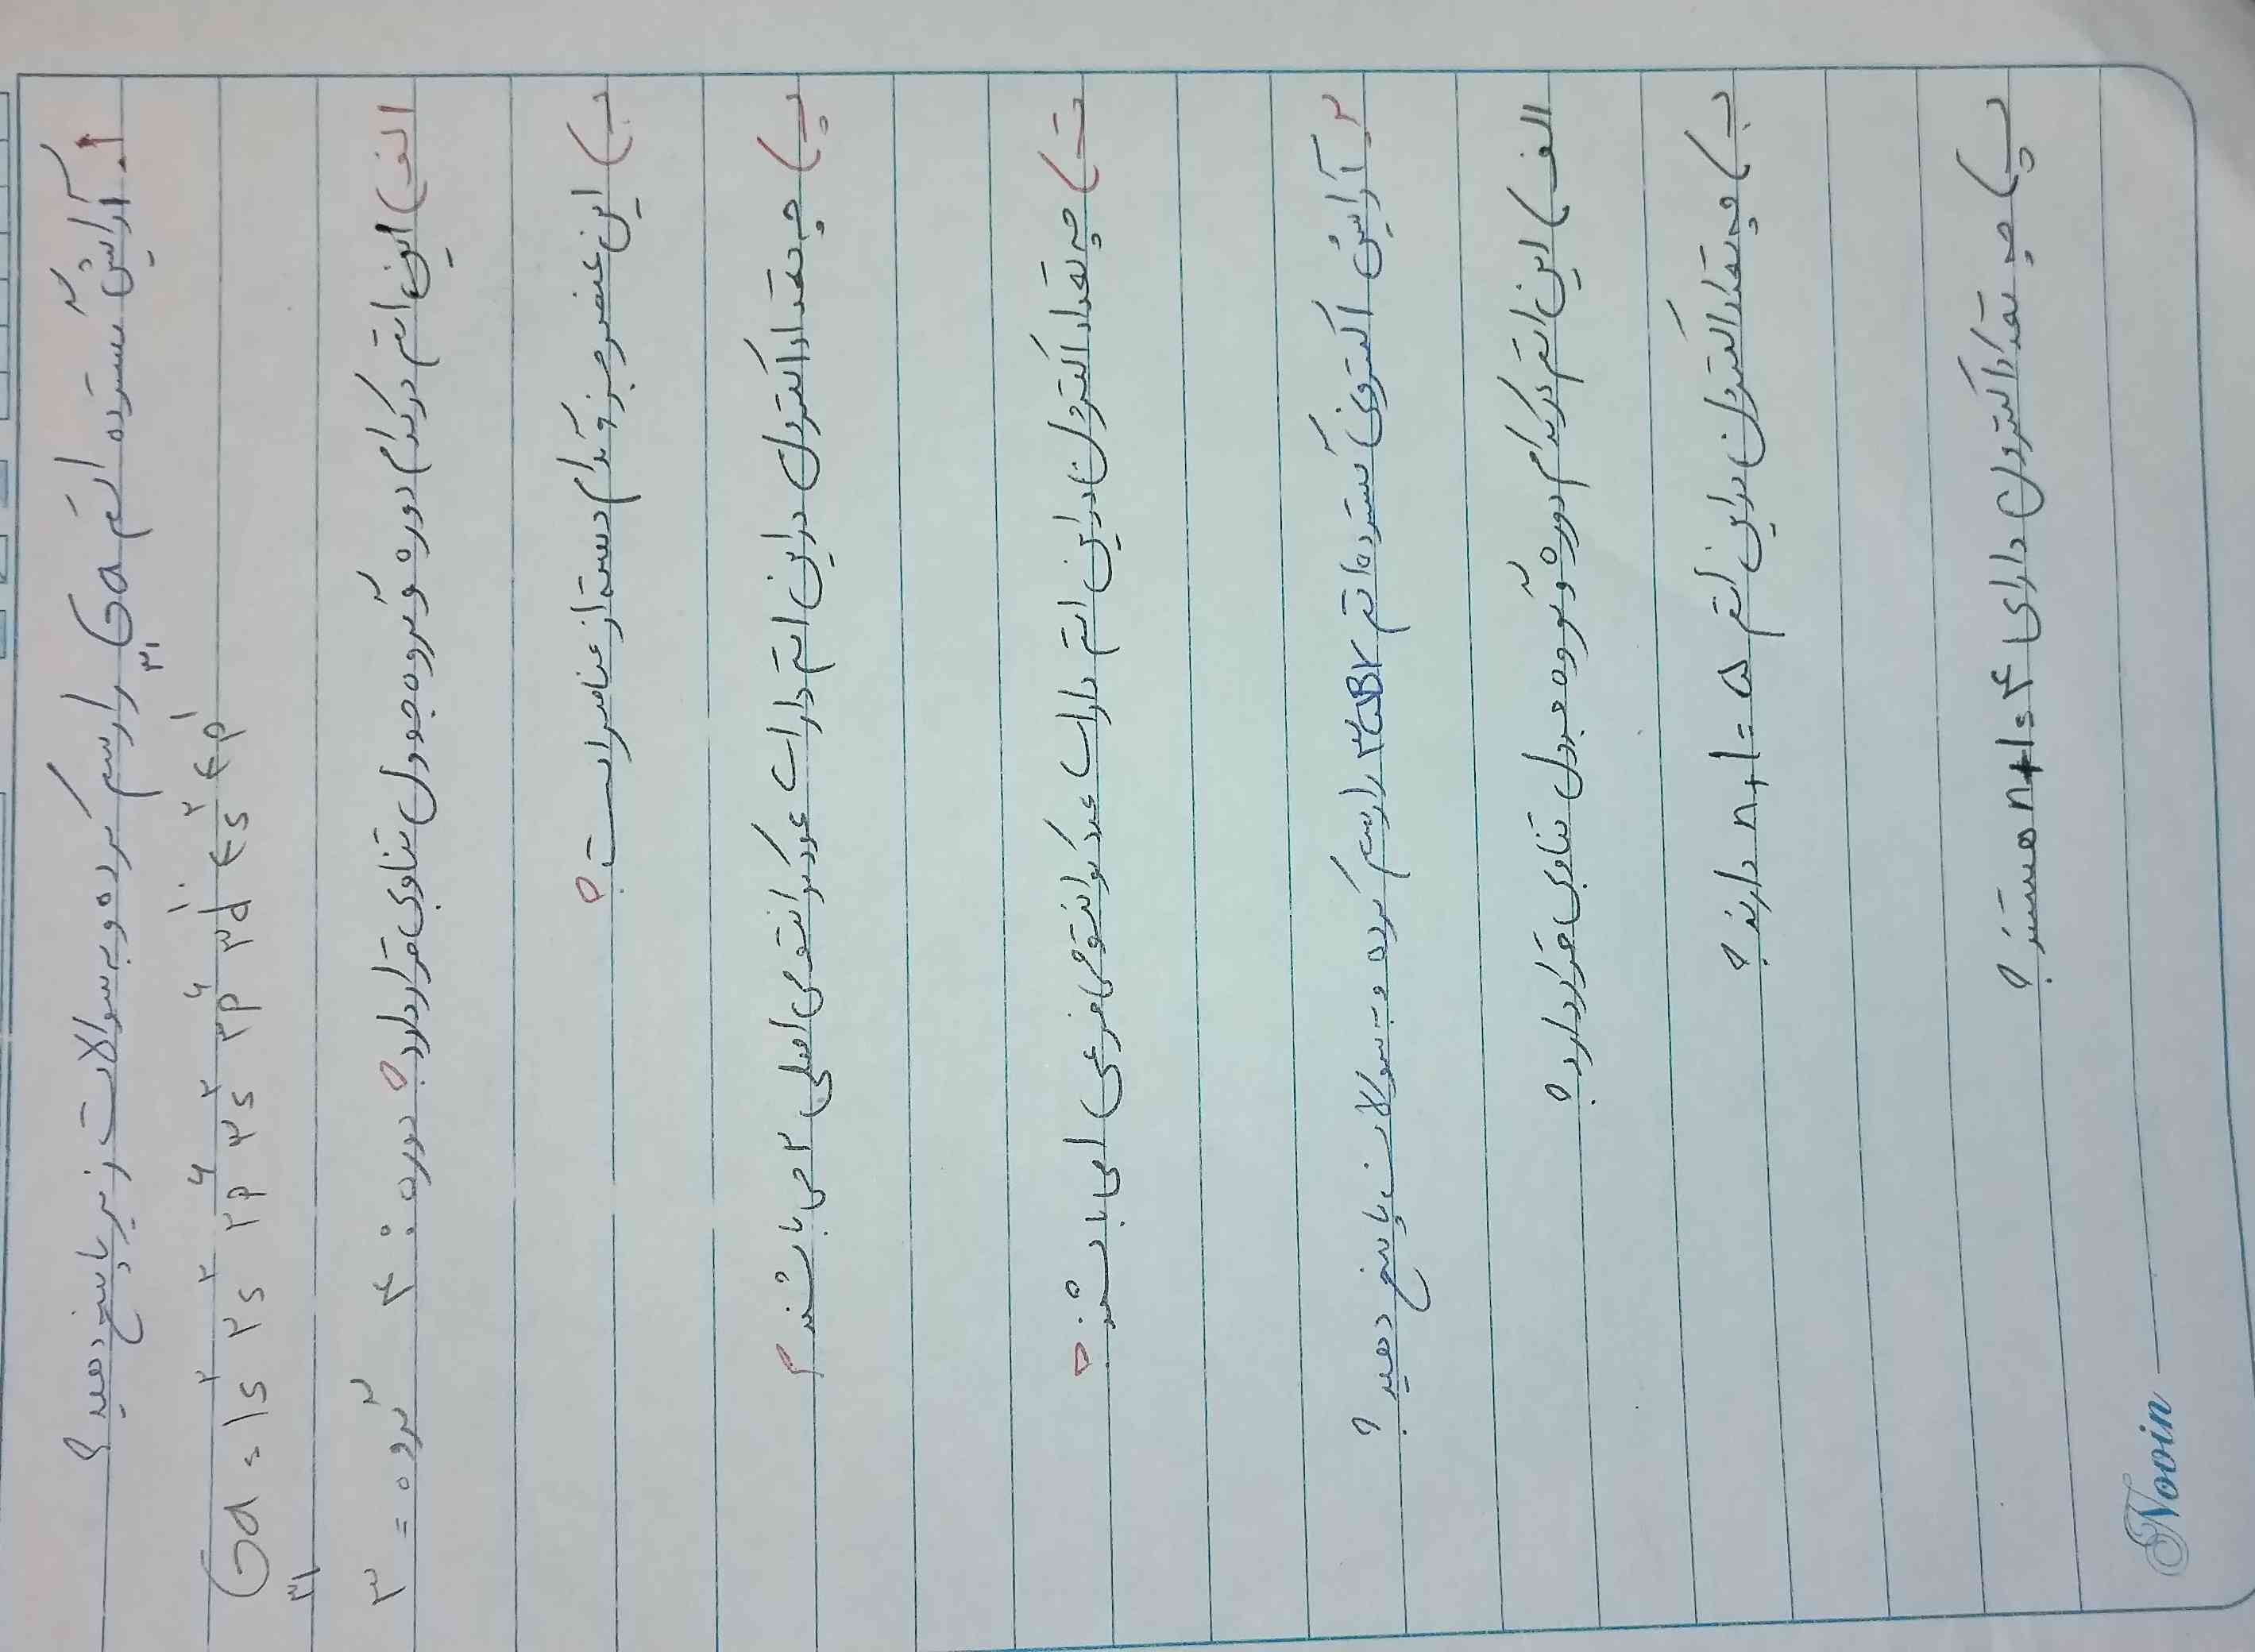 ۱. آرایش گسترده اتم ₃₁Ga را رسم کرده و به سوالات زیر پاسخ دهید؟
₃₁Ga = 1s² ۲s² ۲p⁶ ۳s² ۳p⁶ ۳d¹⁰ ۴s² ۴p¹
الف) این اتم در کدام دوره و گروه جدول تناوبی قرار دارد؟ دوره: ۴ گروه = ۳
ب) این عنصر جز و کدام دسته از عناصر است؟
پ) چه تعداد الکترون در این اتم دارای عدد کوانتومی اصلی ۲ می باشند؟
ت) چه تعداد الکترون در این اتم دارای عدد کوانتومی فرعی ۱ می باشند.؟
۲. آرایش الکترونی گسترده اتم ۳۵Br را رسم کرده و به سوالات پاسخ دهید؟
الف) این اتم در کدام دوره و گروه جدول تناوبی قرار دارد؟
ب) چه تعداد الکترون در این اتم n+l=۵ دارند؟
پ) چه تعداد الکترون دارای n+l=۴ هستند؟
Nooin